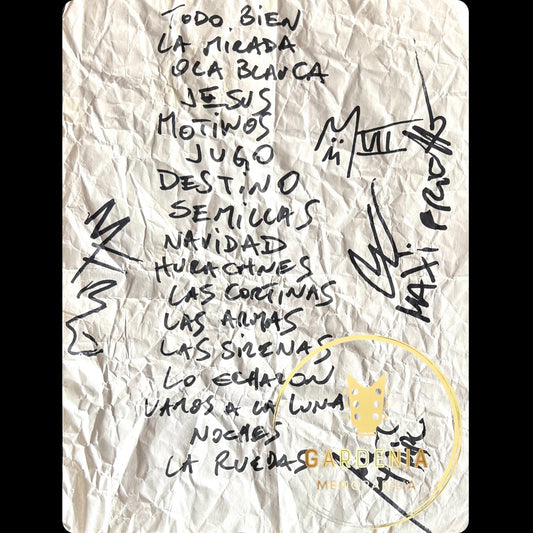 TODO BIEN
LA MIRADA
OLA BLANCA
JESUS
MOTIVOS
JUGO
DESTINO
SEMILLAS
NAVIDAD
HURACANES
LAS CORTINAS
LAS ARMAS
LAS SIRENAS
LO ECHARON
VAMOS A LA LUNA
NOCHES
LA RUEDAS
MAXI PRIETTO
GARDENIA
MEMORABILIA